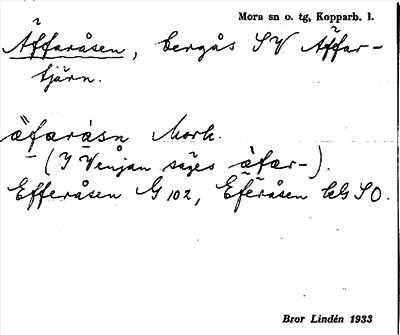 Mora sn o. tg, Kopparb. l.
Äffaråsen, bergås SV Äffar-
tjärn.
æ̀faråsn Mork.
(I Venjan sages æ̀fær-).
Efferåsen G 102, Eferåsen GG SO.
Bror Lindén 1933